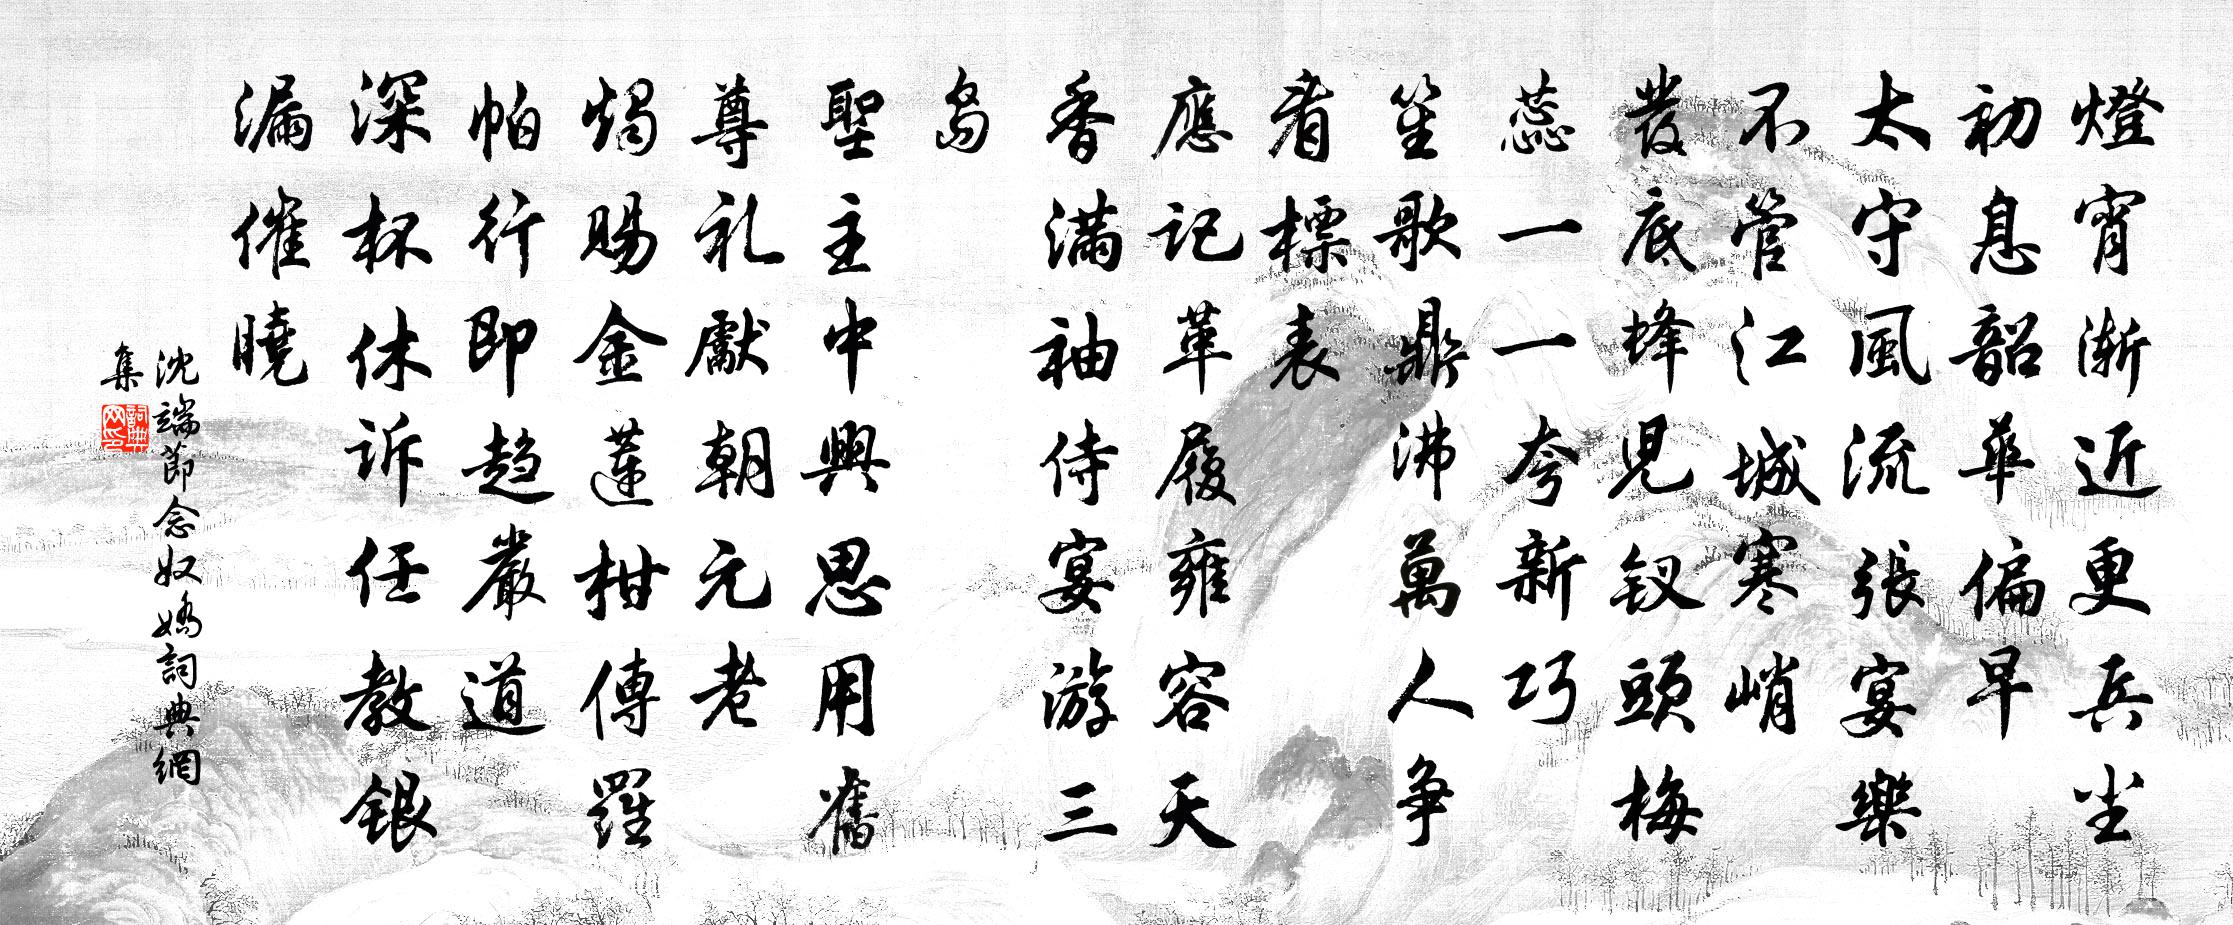 燈宵漸近更兵尘
初息韶華偏早
太守風流張宴樂
不管江城寒峭
蕟底蜂兒釵頭梅
蕊一一夸新巧
笙歌鼎沸萬人争
看標表
應记革履雍容天
香滿袖侍宴游三
島
聖主中興思用舊
尊礼獻朝元老
燭赐金蓮柑傳羅
帕行即趋嚴道
深杯休诉任教銀
漏催曉
沈端節念奴嬌詞典網
集
詞典网印